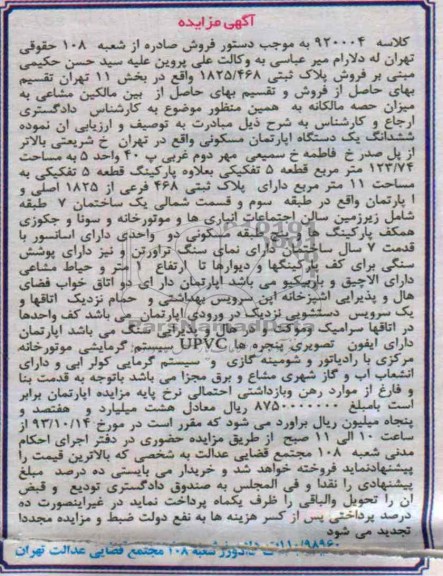 آگهی مزایده
کلاسه ۹۲۰۰۰۴ به موجب دستور فروش صادره از شعبه ۱۰۸ حقوقی
تهران له دلارام میر عباسی به وکالت علی پروین علیه سید حسن حکیمی
مبنی بر فروش پلاک ثبتی ۱۸۲۵/۴۶۸ واقع در بخش ۱۱ تهران تقسیم
بهای حاصل از فروش و تقسیم بهای حاصل از بین مالکین مشاعی به
میزان حصه مالکانه به همین منظور موضوع به کارشناس دادگستری
ارجاع و کارشناس به شرح ذیل مبادرت به توصیف و ارزیابی ان نموده
ششدانگ یک دستگاه اپارتمان مسکونی واقع در تهران خ شریعتی بالاتر
از پل صدر خ فاطمه خ سمیعی مهر دوم غربی پ ۴۰ واحد ۵ به مساحت
۱۲۳/۷۴ متر مربع قطعه ۵ تفکیکی بعلاوه پارکینگ قطعه ۵ تفکیکی به
مساحت ۱۱ متر مربع دارای پلاک ثبتی ۴۶۸ فرعی از ۱۸۲۵ اصلی و
ا پارتمان واقع در طبقه سوم و قسمت شمالی یک ساختمان ۷ طبقه
شامل زیرزمین سالن اجتماعات انباری ها و موتورخانه و سونا و جکوزی
همکف پارکینگ ها و طبقه مسکونی دو واحدی دارای اسانسور با
قدمت ۷ سال ساختمان دارای نمای سنگ تراورتن و نیز دارای پوشش
سنگی برای کف پارکینگها و دیوارها تا ارتفاع متر و حیاط مشاعی
دارای الاچیق و باربکیو می باشد اپارتمان دار ای دو اتاق خواب فضای
هال و پذیرایی اشپزخانه اپن سرویس بهداشتی و حمام نزدیک اتاقها و
یک سرویس دستشویی نزدیک در ورودی اپارتمان می باشد کف واحدها
در اتاقها سرامیک وموکت و در هال پذیرائی سنگ می باشد اپارتمان
دارای ایفون تصویری پنجره ها UPVC سیستم گرمایشی موتورخانه
مرکزی با رادیاتور و شومینه گازی و سیستم گرمایی کولر ابی و دارای
انشعاب اب و گاز شهری مشاع و برق مجزا می باشد باتوجه به قدمت بنا
و فارغ از موارد رهن وبازداشتی احتمالی نرخ پایه مزایده اپارتمان برابر
است بامبلغ ۸۷۵۰۰۰۰۰۰۰ ریال معادل هشت میلیارد و هفتصد و
پنجاه میلیون ریال براورد می شود که مقرر است در مورخ ۹۳/۱۰/۱۴ از
ساعت ۱۰ الی ۱۱ صبح از طریق مزایده حضوری در دفتر اجرای احکام
مدنی شعبه ۱۰۸ مجتمع قضایی عدالت به شخصی که بالاترین قیمت را
پیشنهادنماید فروخته خواهد شد و خریدار می بایستی ده درصد مبلغ
پیشنهادی را نقدا و فی المجلس به صندوق دادگستری تودیع و قبض
ان را تحویل والباقی را ظرف یکماه پرداخت نماید در غیراینصورت ده
درصد پرداختی پس از کسر هزینه ها به نفع دولت ضبط و مزایده مجددا
تجدید می شود
۱۱۰/۹۸۹۶۰ دادورز شعبه ۱۰۸ مجتمع قضایی عدالت تهران